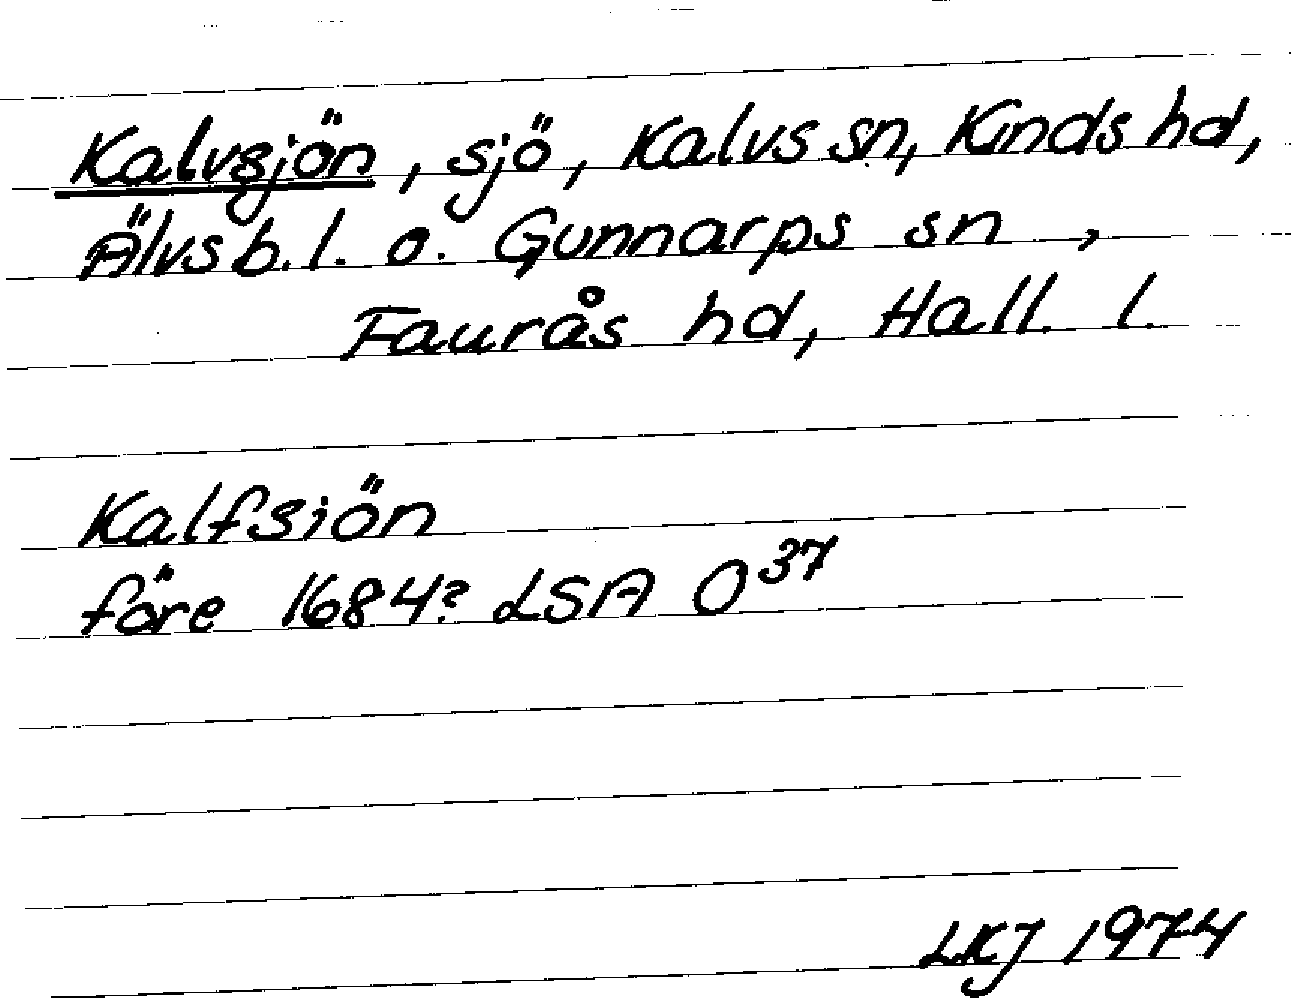 Kalvsjön, sjö, Kalvs sn, Kinds hd,
Älvsb. l. o. Gunnarps sn ,
Faurås hd, Hall. l.
Kalfsiön
före 1684? LSA O37
LKJ 1974